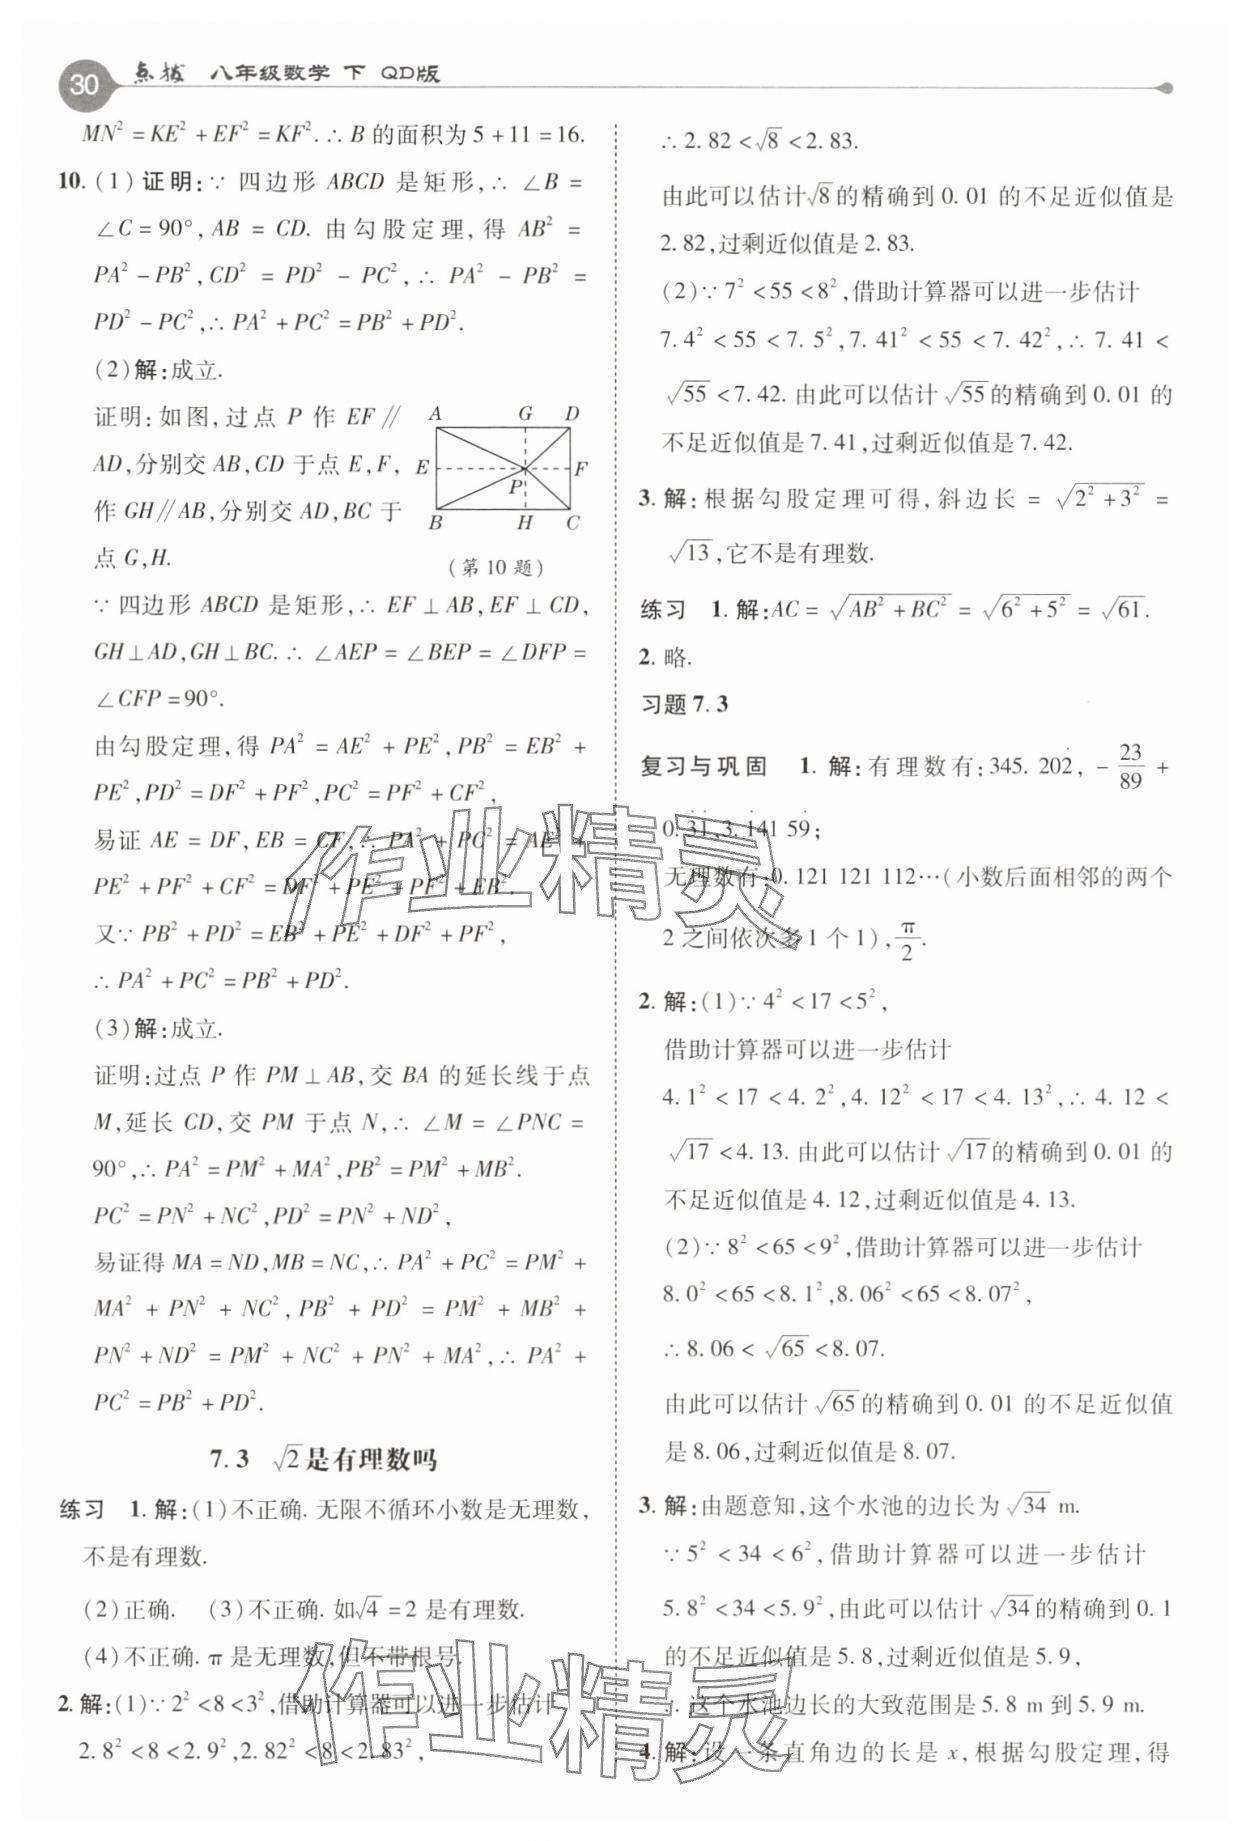 30 点拨 八年级数学 下 QD版
MN²=KE²+EF²=KF².∴B的面积为5+11=16.
10.(1)证明:∵四边形ABCD是矩形,∴∠B=
∠C=90°,AB=CD.由勾股定理,得AB²=
PA²-PB²,CD²=PD²-PC²,∴PA²-PB²=
PD²-PC²,∴PA²+PC²=PB²+PD².
(2)解:成立.
证明:如图,过点P作EF∥
AD,分别交AB,CD于点E,F,
作GH∥AB,分别交AD,BC于
点G,H.
A G D
E F
P
B H C
(第10题)
∵四边形ABCD是矩形,∴EF⊥AB,EF⊥CD,
GH⊥AD,GH⊥BC.∴∠AEP=∠BEP=∠DFP=
∠CFP=90°.
由勾股定理,得PA²=AE²+PE²,PB²=EB²+
PE²,PD²=DF²+PF²,PC²=PF²+CF²,
易证AE=DF,EB=CF,∴PA²+PC²=AE²+
PE²+PF²+CF²=DF²+PE²+PF²+EB².
又∵PB²+PD²=EB²+PE²+DF²+PF²,
∴PA²+PC²=PB²+PD².
(3)解:成立.
证明:过点P作PM⊥AB,交BA的延长线于点
M,延长CD,交PM于点N,∴∠M=∠PNC=
90°,∴PA²=PM²+MA²,PB²=PM²+MB².
PC²=PN²+NC²,PD²=PN²+ND²,
易证得MA=ND,MB=NC,∴PA²+PC²=PM²+
MA²+PN²+NC²,PB²+PD²=PM²+MB²+
PN²+ND²=PM²+NC²+PN²+MA²,∴PA²+
PC²=PB²+PD².
7.3 √2是有理数吗
练习 1.解:(1)不正确.无限不循环小数是无理数,
不是有理数.
(2)正确. (3)不正确.如√4=2是有理数.
(4)不正确.π是无理数,但不带根号.
2.解:(1)∵2²<8<3²,借助计算器可以进一步估计
2.8²<8<2.9²,2.82²<8<2.83²,
∴2.82<√8<2.83.
由此可以估计√8的精确到0.01的不足近似值是
2.82,过剩近似值是2.83.
(2)∵7²<55<8²,借助计算器可以进一步估计
7.4²<55<7.5²,7.41²<55<7.42²,∴7.41<
√55<7.42.由此可以估计√55的精确到0.01的
不足近似值是7.41,过剩近似值是7.42.
3.解:根据勾股定理可得,斜边长=√(2²+3²)=
√13,它不是有理数.
练习 1.解:AC=√(AB²+BC²)=√(6²+5²)=√61.
2.略.
习题7.3
复习与巩固 1.解:有理数有:345.202̇,-23/89+
0.3̇1̇,3.1̇41 59̇;
无理数有:0.121 121 112…(小数后面相邻的两个
2之间依次多1个1),π/2.
2.解:(1)∵4²<17<5²,
借助计算器可以进一步估计
4.1²<17<4.2²,4.12²<17<4.13²,∴4.12<
√17<4.13.由此可以估计√17的精确到0.01的
不足近似值是4.12,过剩近似值是4.13.
(2)∵8²<65<9²,借助计算器可以进一步估计
8.0²<65<8.1²,8.06²<65<8.07²,
∴8.06<√65<8.07.
由此可以估计√65的精确到0.01的不足近似值
是8.06,过剩近似值是8.07.
3.解:由题意知,这个水池的边长为√34 m.
∵5²<34<6²,借助计算器可以进一步估计
5.8²<34<5.9²,由此可以估计√34的精确到0.1
的不足近似值是5.8,过剩近似值是5.9,
∴这个水池边长的大致范围是5.8 m到5.9 m.
4.解:设一条直角边的长是x,根据勾股定理,得
作业精灵
作业精灵